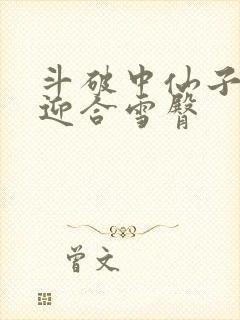 斗破中仙子
迎合雪臀
曾文